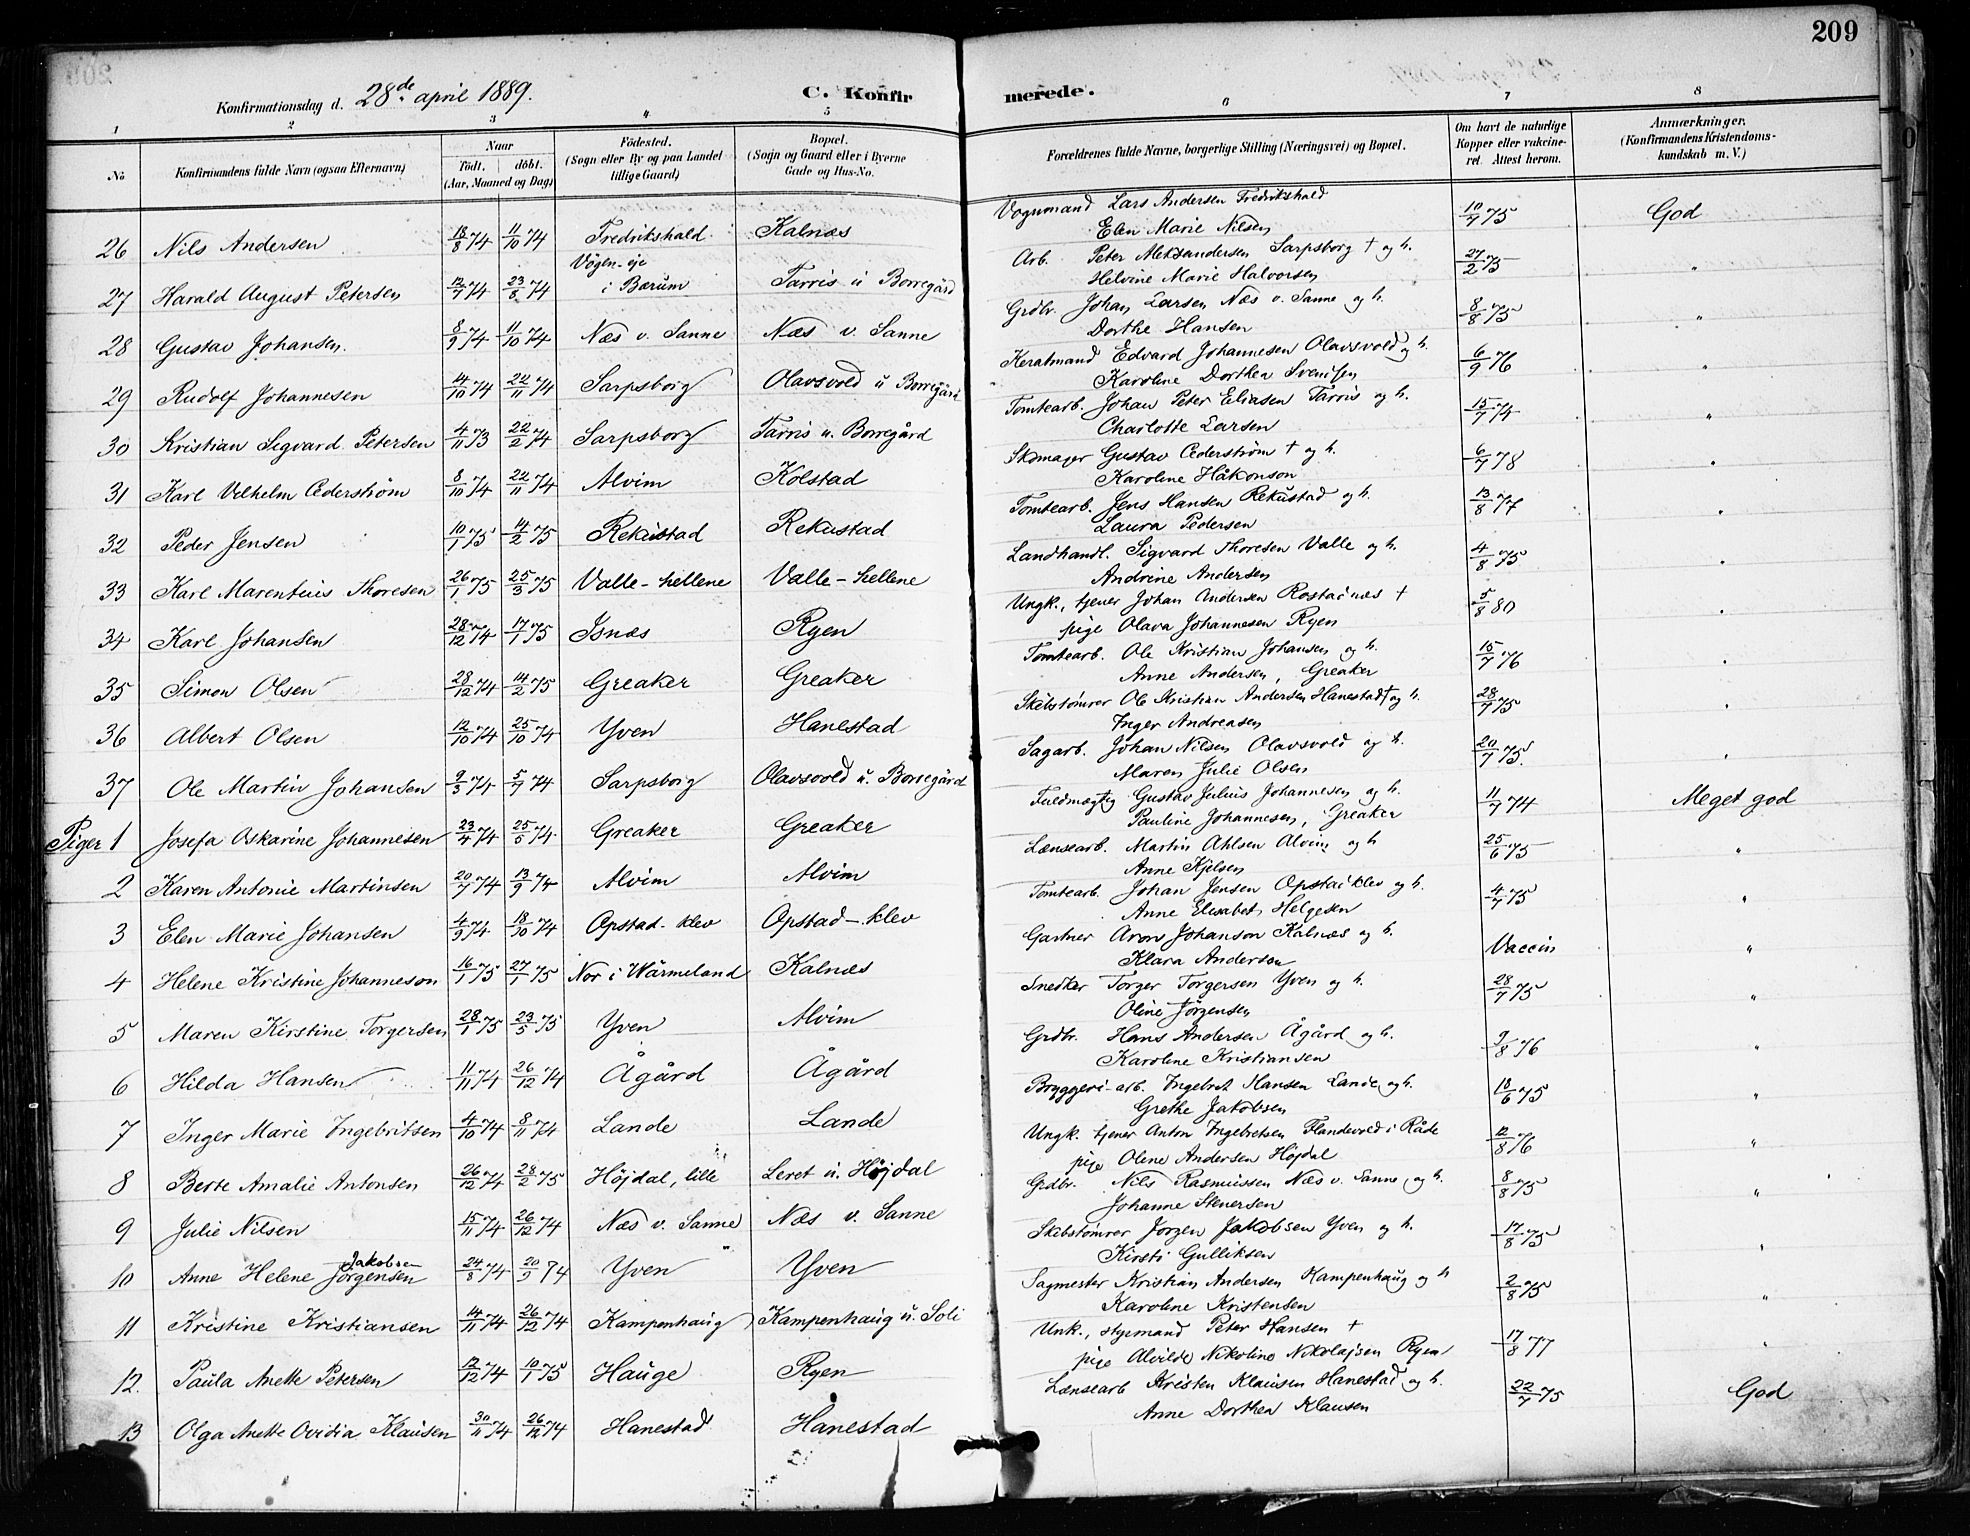 209
Konfirmationsdag d. 28de april 1889. C. Konfirmerede.
1 2 3 4 5 6 7 8
No Konfirmandens fulde Navn (ogsaa Efternavn) Naar Födt. döbt. (Aar, Maaned og Dag) Födested. (Sogn eller By og paa Landet tillige Gaard) Bopæl. (Sogn og Gaard eller i Byerne Gade og Hus-No. Forældrenes fulde Navne, borgerlige Stilling (Næringsvei) og Bopæl. Om havt de naturlige Kopper eller vakcineret. Attest herom. Anmærkninger. (Konfirmandens Kristendomskundskab m. V.)
26 Nils Andersen 18/8 74 11/10 74 Fredrikshald Kalnæs Vognmand Lars Andersen Fredrikshald Elen Marie Nilsen 10/7 75 God
27 Harald August Petersen 12/7 74 23/8 74 Vögen-eje i Bærum Tarris u Borregård Arb. Peter Aleksandersen Sarpsborg † og h. Helvine Marie Halvorsen 27/2 75 "
28 Gustav Johansen. 8/9 74 11/10 74 Næs v. Sanne Næs v. Sanne Grdbr. Johan Larsen Næs v. Sanne og h. Dorthe Hansen 8/8 75 "
29 Rudolf Johannesen 14/10 74 22/11 74 Sarpsborg Olavsvold u Borregård Edvard Johannesen Olavsvold og h. Karoline Dorthea Svensen 6/9 76 "
30 Kristian Sigvard Petersen 4/11 73 22/2 74 Sarpsborg Tarris u. Borregård Tomtearb. Johan Peter Eliasen Tarris og h. Charlotte Larsen 15/7 74 "
31 Karl Vilhelm Cederström 8/10 74 22/11 74 Alvim Kolstad Skomager Gustav Cederström † og h. Karoline Håkonson 6/7 78 "
32 Peder Jensen 10/1 75 14/2 75 Rekustad Rekustad Tomtearb. Jens Hansen Rekustad og h. Laura Pedersen 13/8 77 "
33 Karl Marentius Thoresen 26/1 75 25/3 75 Valle-hellene Valle-hellene Landhandl. Sigvard Thoresen Valle og h. Andrine Andersen 4/8 75 "
34 Karl Johansen 28/12 74 17/1 75 Isnæs Ryen Ungk., tjener Johan Andersen Rostadnæs † pige Olava Johannesen Ryen 5/8 80 "
35 Simon Olsen 28/12 74 14/2 75 Greaker Greaker Tomtearb. Ole Kristian Johansen og h. Anne Andersen, Greaker 15/7 76 "
36 Albert Olsen 12/10 74 25/10 74 Yven Hanestad Skibstömrer Ole Kristian Andersen Hanestad † og h. Inger Andreasen 28/7 75 "
37 Ole Martin Johansen 9/3 74 5/7 74 Sarpsborg Olavsvold u. Borregård Sagarb. Johan Nilsen Olavsvold og h. Maren Julie Olsen 20/7 75. "
Piger 1 Josefa Oskarine Johannesen 23/4 74 25/5 74 Greaker Greaker Fuldmægtig Gustav Julius Johannesen og h. Pauline Johannesen, Greaker 11/7 74 Meget god
2 Karen Antonie Martinsen 20/7 74 13/9 74 Alvim Alvim Lænsearb. Martin Ahlsen Alvim og h Anne Kjelsen 25/6 75 "
3 Elen Marie Johansen 4/9 74 18/10 74 Opstad-klev Opstad-klev Tomtearb. Johan Jensen Opstadklev og h. Anne Elisabet Helgesen 4/7 75 "
4 Helene Kristine Johanneson 16/1 75 27/1 75 Nor i Wärmeland Kalnæs Gartner Aron Johanson Kalnæs og h. Klara Anderson Vaccin "
5 Maren Kirstine Torgersen 28/1 75 23/5 75 Yven Alvim Snedker Torger Torgersen Yven og h. Oline Jörgensen 28/7 75 "
6 Hilda Hansen 11/11 74 26/12 74 Ågård Ågård Grdbr. Hans Andersen Ågård og h. Karoline Kristiansen 9/8 76 "
7 Inger Marie Ingebritsen 4/10 74 8/11 74 Lande Lande Bryggeri-arb. Ingebret Hansen Lande og h. Grethe Jakobsen 18/6 75 "
8 Berte Amalie Antonsen 26/12 74 28/2 75 Höjdal, lille Leret u. Höjdal Ungk. tjener Anton Ingebretsen Flandevold i Råde pige Oline Andersen Höjdal 12/8 76 "
9 Julie Nilsen 15/11 74 26/12 74 Næs v. Sanne Næs v. Sanne Grdbr. Nils Rasmussen Næs v. Sanne og h. Johanne Stenersen 8/8 75 "
10 Anne Helene Jörgensen Jakobsen 24/8 74 20/9 74 Yven Yven Skibstömrer Jörgen Jakobsen Yven og h. Kirsti Gulliksen 17/8 75 "
11 Kristine Kristiansen 14/11 74 26/12 74 Kampenhaug Kampenhaug u. Soli Sagmester Kristian Andersen Kampenhaug og h Karoline Kristensen 2/8 75 "
12. Paula Anette Petersen 12/12 74 10/1 75 Hauge Ryen Unk., styrmand Peter Hansen † pige Alvilde Nikoline Nikolajsen Ryen 17/8 77 "
13 Olga Anette Ovidia Klausen 30/11 74 26/12 74 Hanestad Hanestad Lænsearb Kristen Klausen Hanestad og h. Anne Dorthea Klausen 22/7 75 God